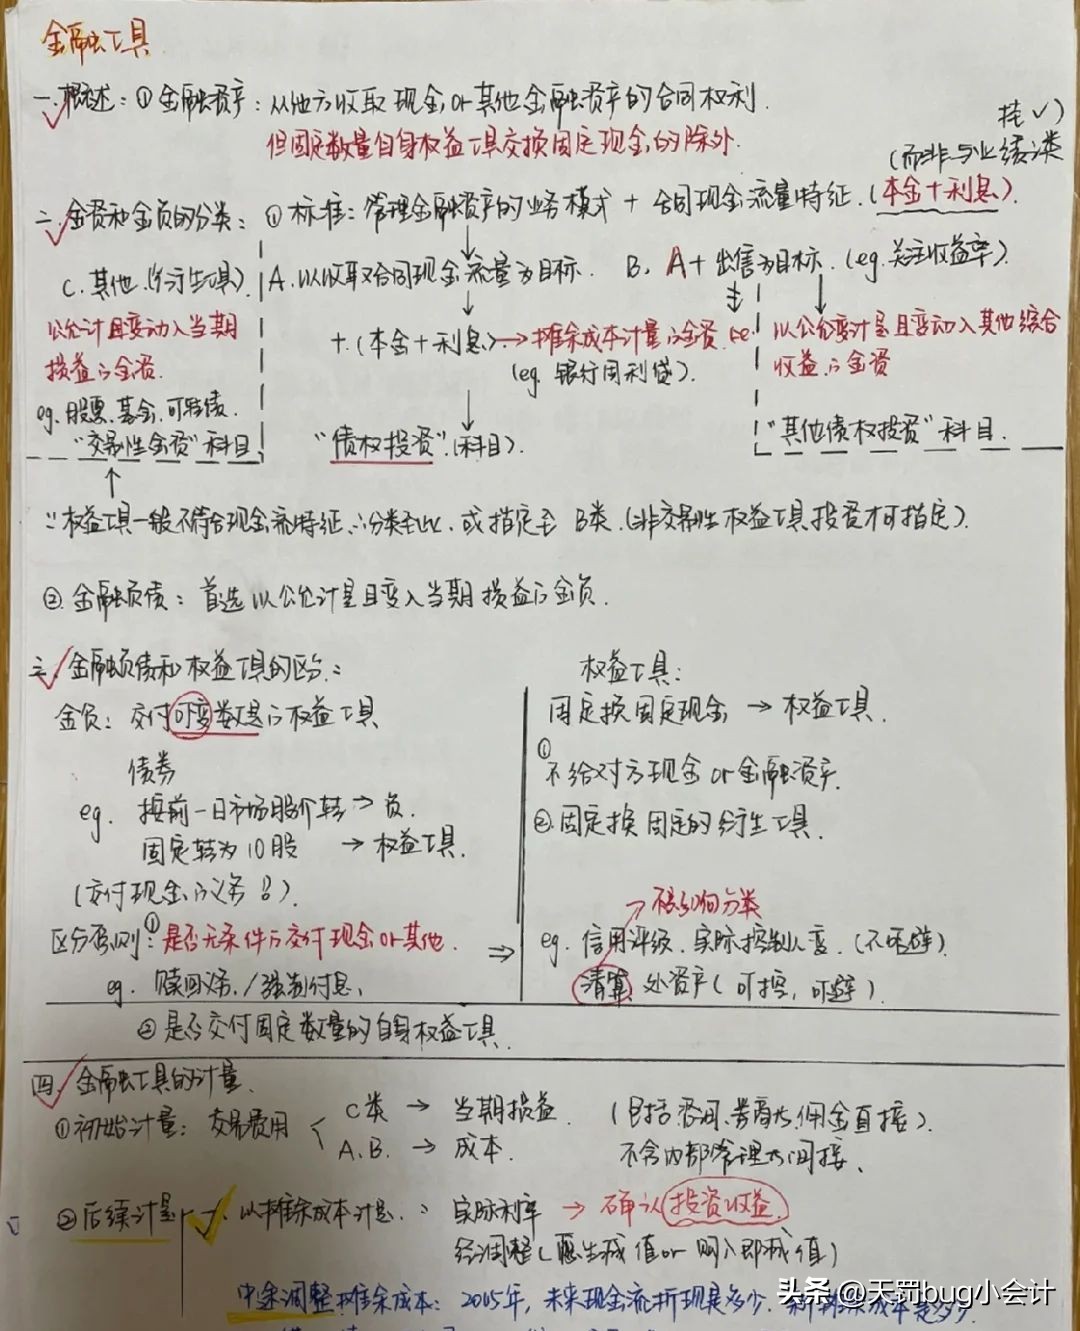 金融工具
一.概述：① 金融资产：从他方收取现金or其他金融资产的合同权利.
但固定数量自身权益工具交换固定现金的除外.
挂√)
(而非与业绩类
二.金资和金负的分类：① 标准：管理金融资产的业务模式 + 合同现金流量特征.(本金+利息).
C.其他.(衍生工具).
A.以收取合同现金流量为目标.
B. A+出售为目标.(eg.关注收益率).
公允计且变动入当期
损益の金资.
eg.股票.基金.可转债.
"交易性金资"科目
+.(本金+利息)→摊余成本计量の金资.
(eg.银行固利贷).
"债权投资".(科目).
以公允变计量且变动入其他综合
收益の金资
"其他债权投资"科目.
∵权益工具一般不符合现金流特征∴分类至此.或指定至B类.(非交易性权益工具投资才可指定).
②.金融负债：首选以公允计量且变入当期损益の金负.
三.金融负债和权益工具的区分：
金负：交付可变数量の权益工具
债券
eg.按前一日市场股价转→负.
固定转为10股→权益工具.
(交付现金の义务?).
区分原则：①是否无条件の交付现金or其他.
eg.赎回义务./强制付息.
②是否交付固定数量的自身权益工具.
权益工具：
固定换固定现金→权益工具.
①不给对方现金or金融资产.
②.固定换固定的衍生工具.
→不影响分类
eg.信用评级.实际控制人变.(不可避).
清算.处资产(可控,可避).
四.金融工具的计量.
①初始计量：交易费用
C类→当期损益.(包括咨询.券商大.佣金直接).
A.B.→成本.不含内部管理大间接.
②后续计量 一.以摊余成本计量.：实际利率→确认投资收益.
经调整(愿生减值or购入即减值)
中途调整摊余成本：2015年,未来现金流折现是多少.新摊余成本是多少.
头条@天罚bug小会计